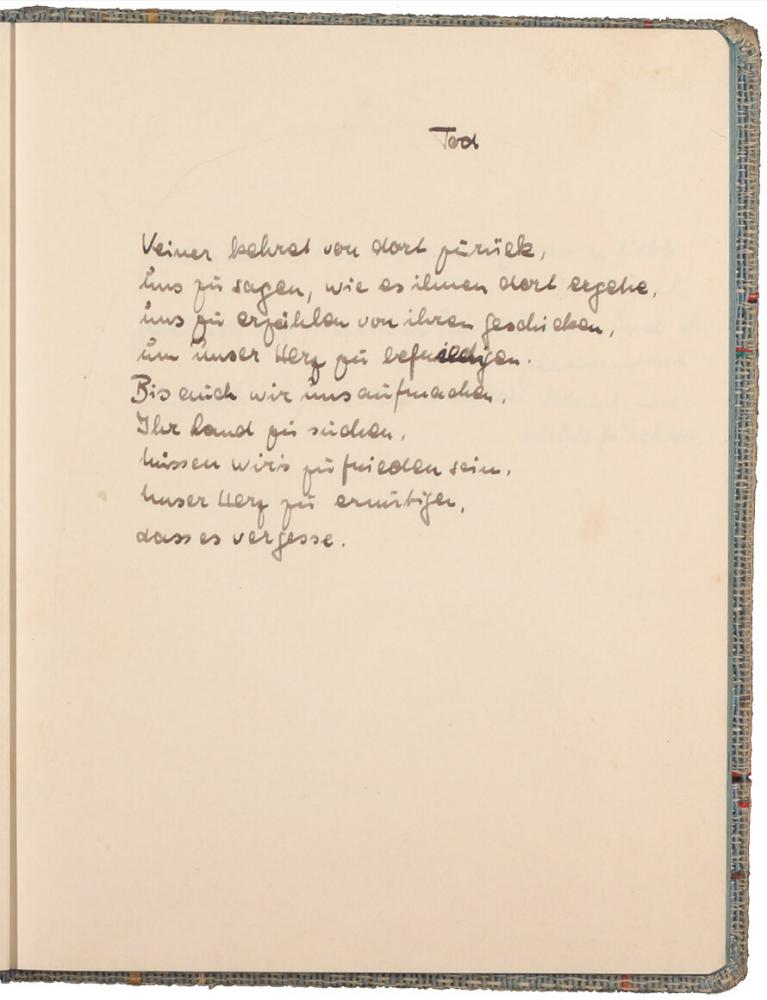 Tod
Keiner kehret von dort zurück,
uns zu sagen, wie es ihnen dort ergehe,
uns zu erzählen von ihren Geschicken,
um unser Herz zu befriedigen.
Bis auch wir uns aufmachen,
Ihr Land zu suchen,
müssen wir's zufrieden sein,
unser Herz zu ermutigen,
dass es vergesse.